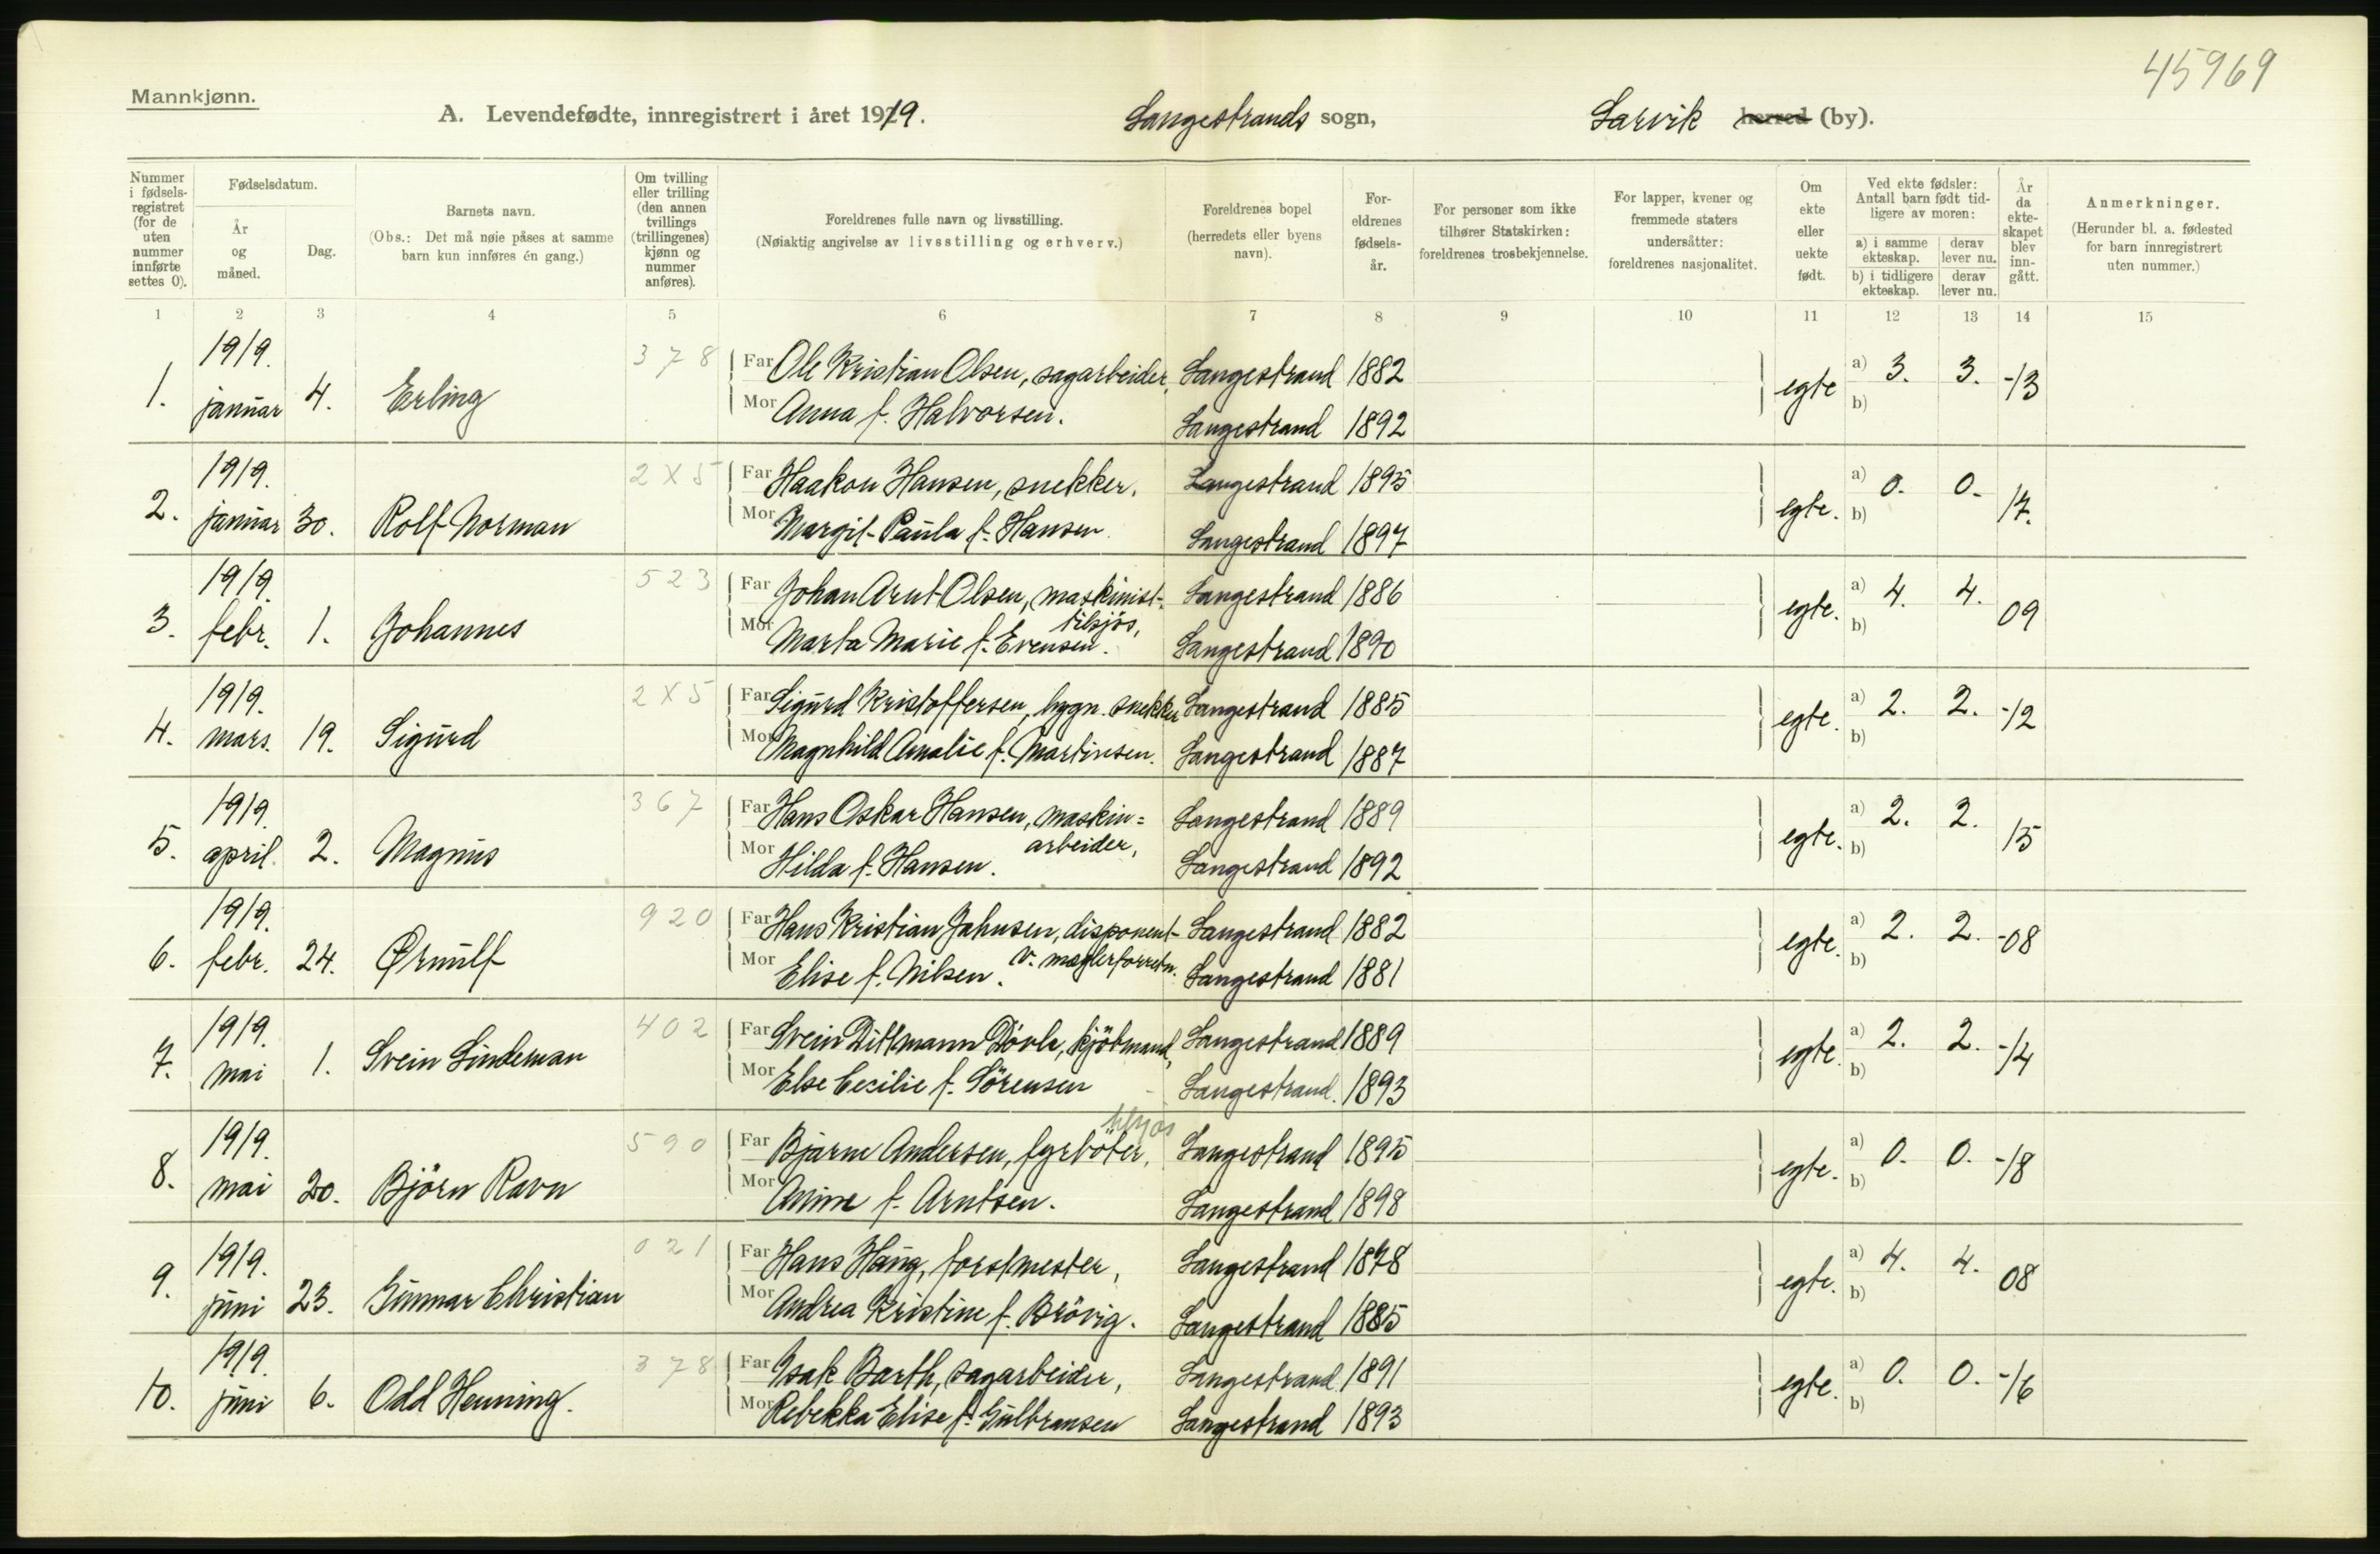 45969
Mannkjønn.
A. Levendefødte, innregistrert i året 1919. Langestrands sogn, Larvik herred (by).
Nummer i fødsels-registret (for de uten nummer innførte settes 0).
Fødselsdatum.
År og måned.
Dag.
Barnets navn.
(Obs.: Det må nøie påses at samme barn kun innføres én gang.)
Om tvilling eller trilling (den annen tvillings (trillingenes) kjønn og nummer anføres).
Foreldrenes fulle navn og livsstilling.
(Nøiaktig angivelse av livsstilling og erhverv.)
Foreldrenes bopel (herredets eller byens navn).
For-eldrenes fødsels-år.
For personer som ikke tilhører Statskirken: foreldrenes trosbekjennelse.
For lapper, kvener og fremmede staters undersåtter: foreldrenes nasjonalitet.
Om ekte eller uekte født.
Ved ekte fødsler: Antall barn født tid-ligere av moren:
a) i samme ekteskap. derav lever nu.
b) i tidligere ekteskap. derav lever nu.
År da ekte-skapet blev inn-gått.
Anmerkninger.
(Herunder bl. a. fødested for barn innregistrert uten nummer.)
1 2 3 4 5 6 7 8 9 10 11 12 13 14 15
1. 1919. januar 4. Erling 378 Far Ole Kristian Olsen, sagarbeider, Langestrand 1882 egte a) 3. 3. -13
Mor Anna f. Halvorsen. Langestrand 1892 b)
2. 1919. januar 30. Rolf Norman 2X5 Far Haakon Hansen, snekker, Langestrand 1895 egte. a) 0. 0. 17.
Mor Margit Paula f. Hansen. Langestrand 1897 b)
3. 1919. febr. 1. Johannes 523 Far Johan Arnt Olsen, maskinist Langestrand 1886 egte. a) 4. 4. 09
tilsjös,
Mor Marta Marie f. Evensen. Langestrand 1890 b)
4. 1919. mars. 19. Sigurd 2X5 Far Sigurd Kristoffersen, bygn. snekker Langestrand 1885 egte. a) 2. 2. -12
Mor Magnhild Amalie f. Martinsen. Langestrand 1887 b)
5. 1919. april. 2. Magnus 367 Far Hans Oskar Hansen, maskin= Langestrand 1889 egte. a) 2. 2. 15
arbeider,
Mor Hilda f. Hansen. Langestrand 1892 b)
6. 1919. febr. 24. Ørnulf 920 Far Hans Kristian Jahnsen, disponent Langestrand 1882 egte. a) 2. 2. -08
v. mæglerforretn.
Mor Elise f. Nilsen. Langestrand 1881 b)
7. 1919. mai 1. Svein Lindeman 402 Far Svein Dittmann Dövle, kjöbmand, Langestrand 1889 egte. a) 2. 2. -14
Mor Else Cecilie f. Sörensen Langestrand. 1893 b)
tilsjøs
8. 1919. mai 20. Björn Ravn 590 Far Bjarne Andersen, fyrböter, Langestrand 1895 egte. a) 0. 0. -18
Mor Anine f. Arntsen. Langestrand 1898 b)
9. 1919. juni 23. Gunnar Christian 021 Far Hans Haug, forstmester, Langestrand 1878 egte. a) 4. 4. 08
Mor Andrea Kristine f. Brövig. Langestrand 1885 b)
10. 1919. juni 6. Odd Henning. 378 Far Isak Barth, sagarbeider, Langestrand 1891 egte. a) 0. 0. -16
Mor Rebekka Elise f. Gulbransen Langestrand 1893 b)